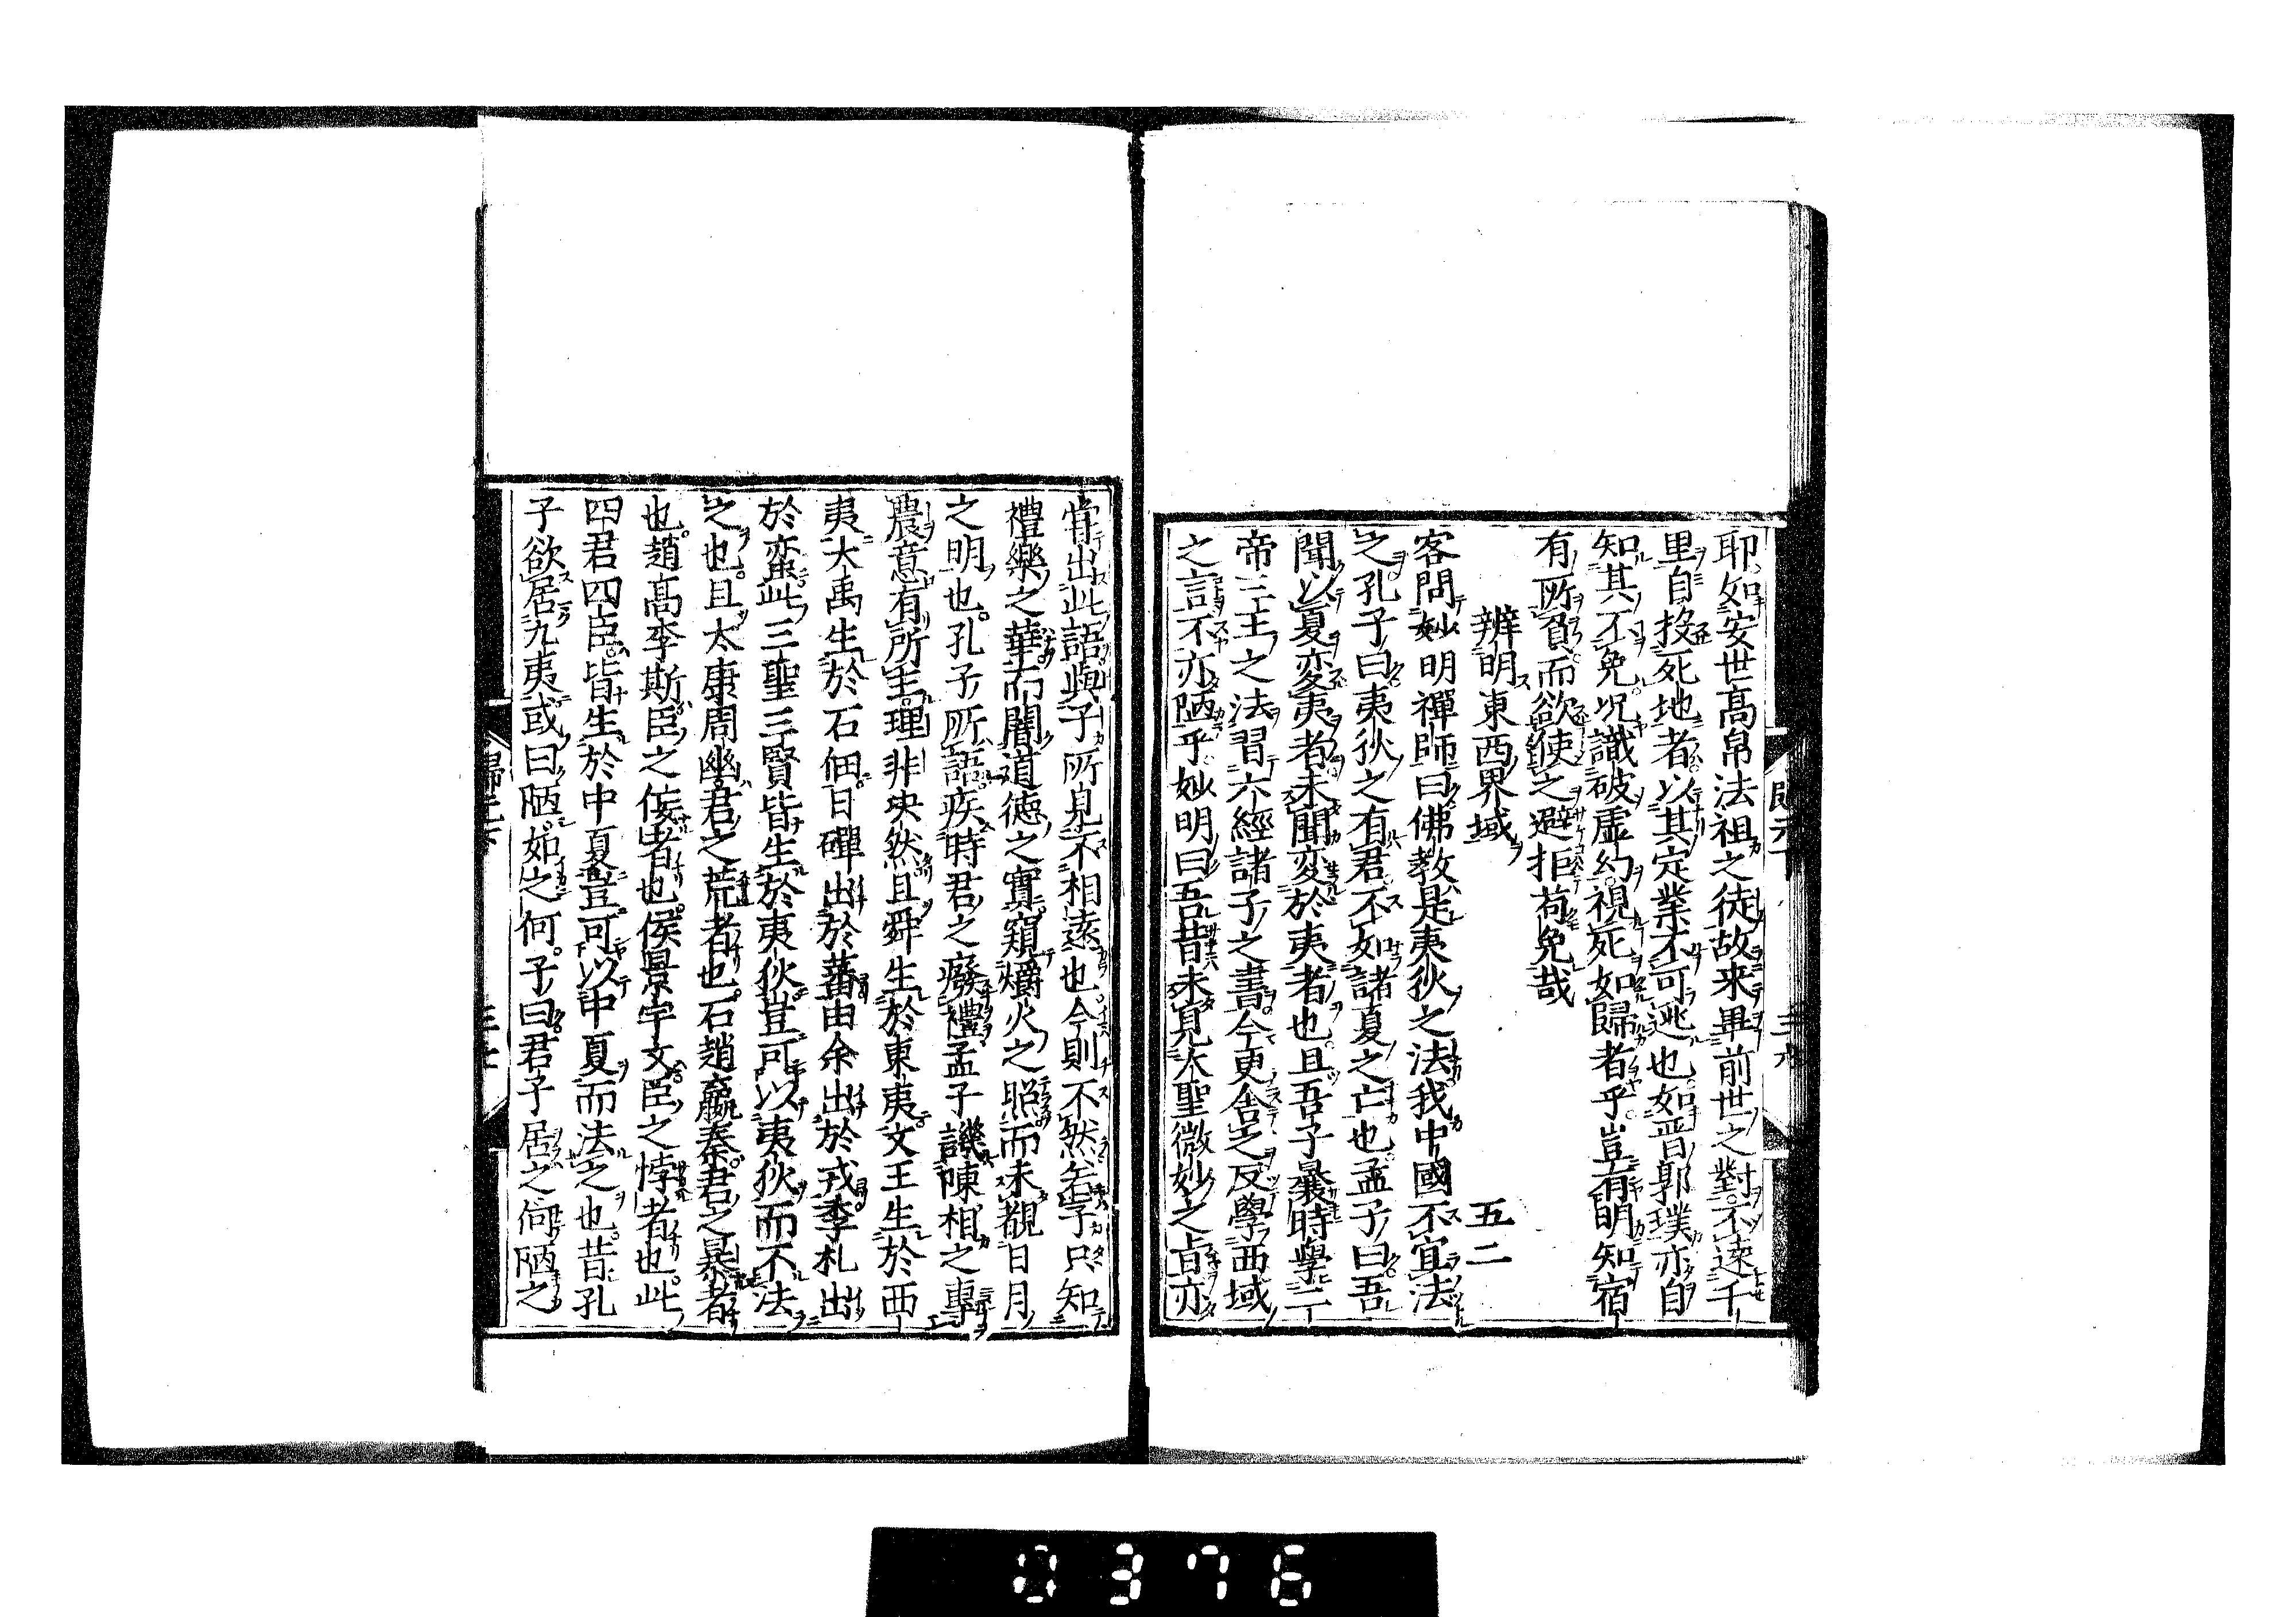 耶如安世高帛法祖之徒故来畢前世之對不遠千
里自投死地者以其定業不可逃也如晋郭璞亦自
知其不免况識破虚約視死如歸者乎豈有明知宿
有所負而欲使之避拒苟免哉
辨明東西界域 五二
客問妙明禪師曰佛教是夷狄之法我中國不宜法
之孔子曰夷狄之有君不如諸夏之亡也孟子曰吾
聞以夏変夷者未聞変於夷者也且吾子曩時學二
帝三王之法習六經諸子之書今更舎之反學西域
之言不亦陋乎妙明曰吾昔未見大聖微妙之旨亦
甞出此語與子所見不相遠也今則不然若子只知
禮樂之華而闇道德之實窺爝火之照而未覩日月
之明也孔子所語疾時君之癈禮孟子譏陳相之專
農意有所主理非决然且舜生於東夷文王生於西
夷大禹生於石佃日磾出於蕃由余出於戎季札出
於蛮此三聖三賢皆生於夷狄豈可以夷狄而不法
之也且太康周幽君之荒者也石趙嬴秦君之暴者
也趙髙李斯臣之侫者也侯景宇文臣之悖者也此
四君四臣皆生於中夏豈可以中夏而法之也昔孔
子欲居九夷或曰陋如之何子曰君子居之何陋之